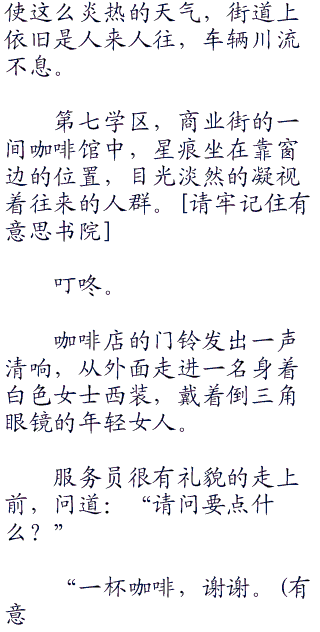 使这么炎热的天气，街道上
依旧是人来人往，车辆川流
不息。
第七学区，商业街的一
间咖啡馆中，星痕坐在靠窗
边的位置，目光淡然的凝视
着往来的人群。[请牢记住有
意思书院]
叮咚。
咖啡店的门铃发出一声
清响，从外面走进一名身着
白色女士西装，戴着倒三角
眼镜的年轻女人。
服务员很有礼貌的走上
前，问道：“请问要点什
么？”
“一杯咖啡，谢谢。(有
意